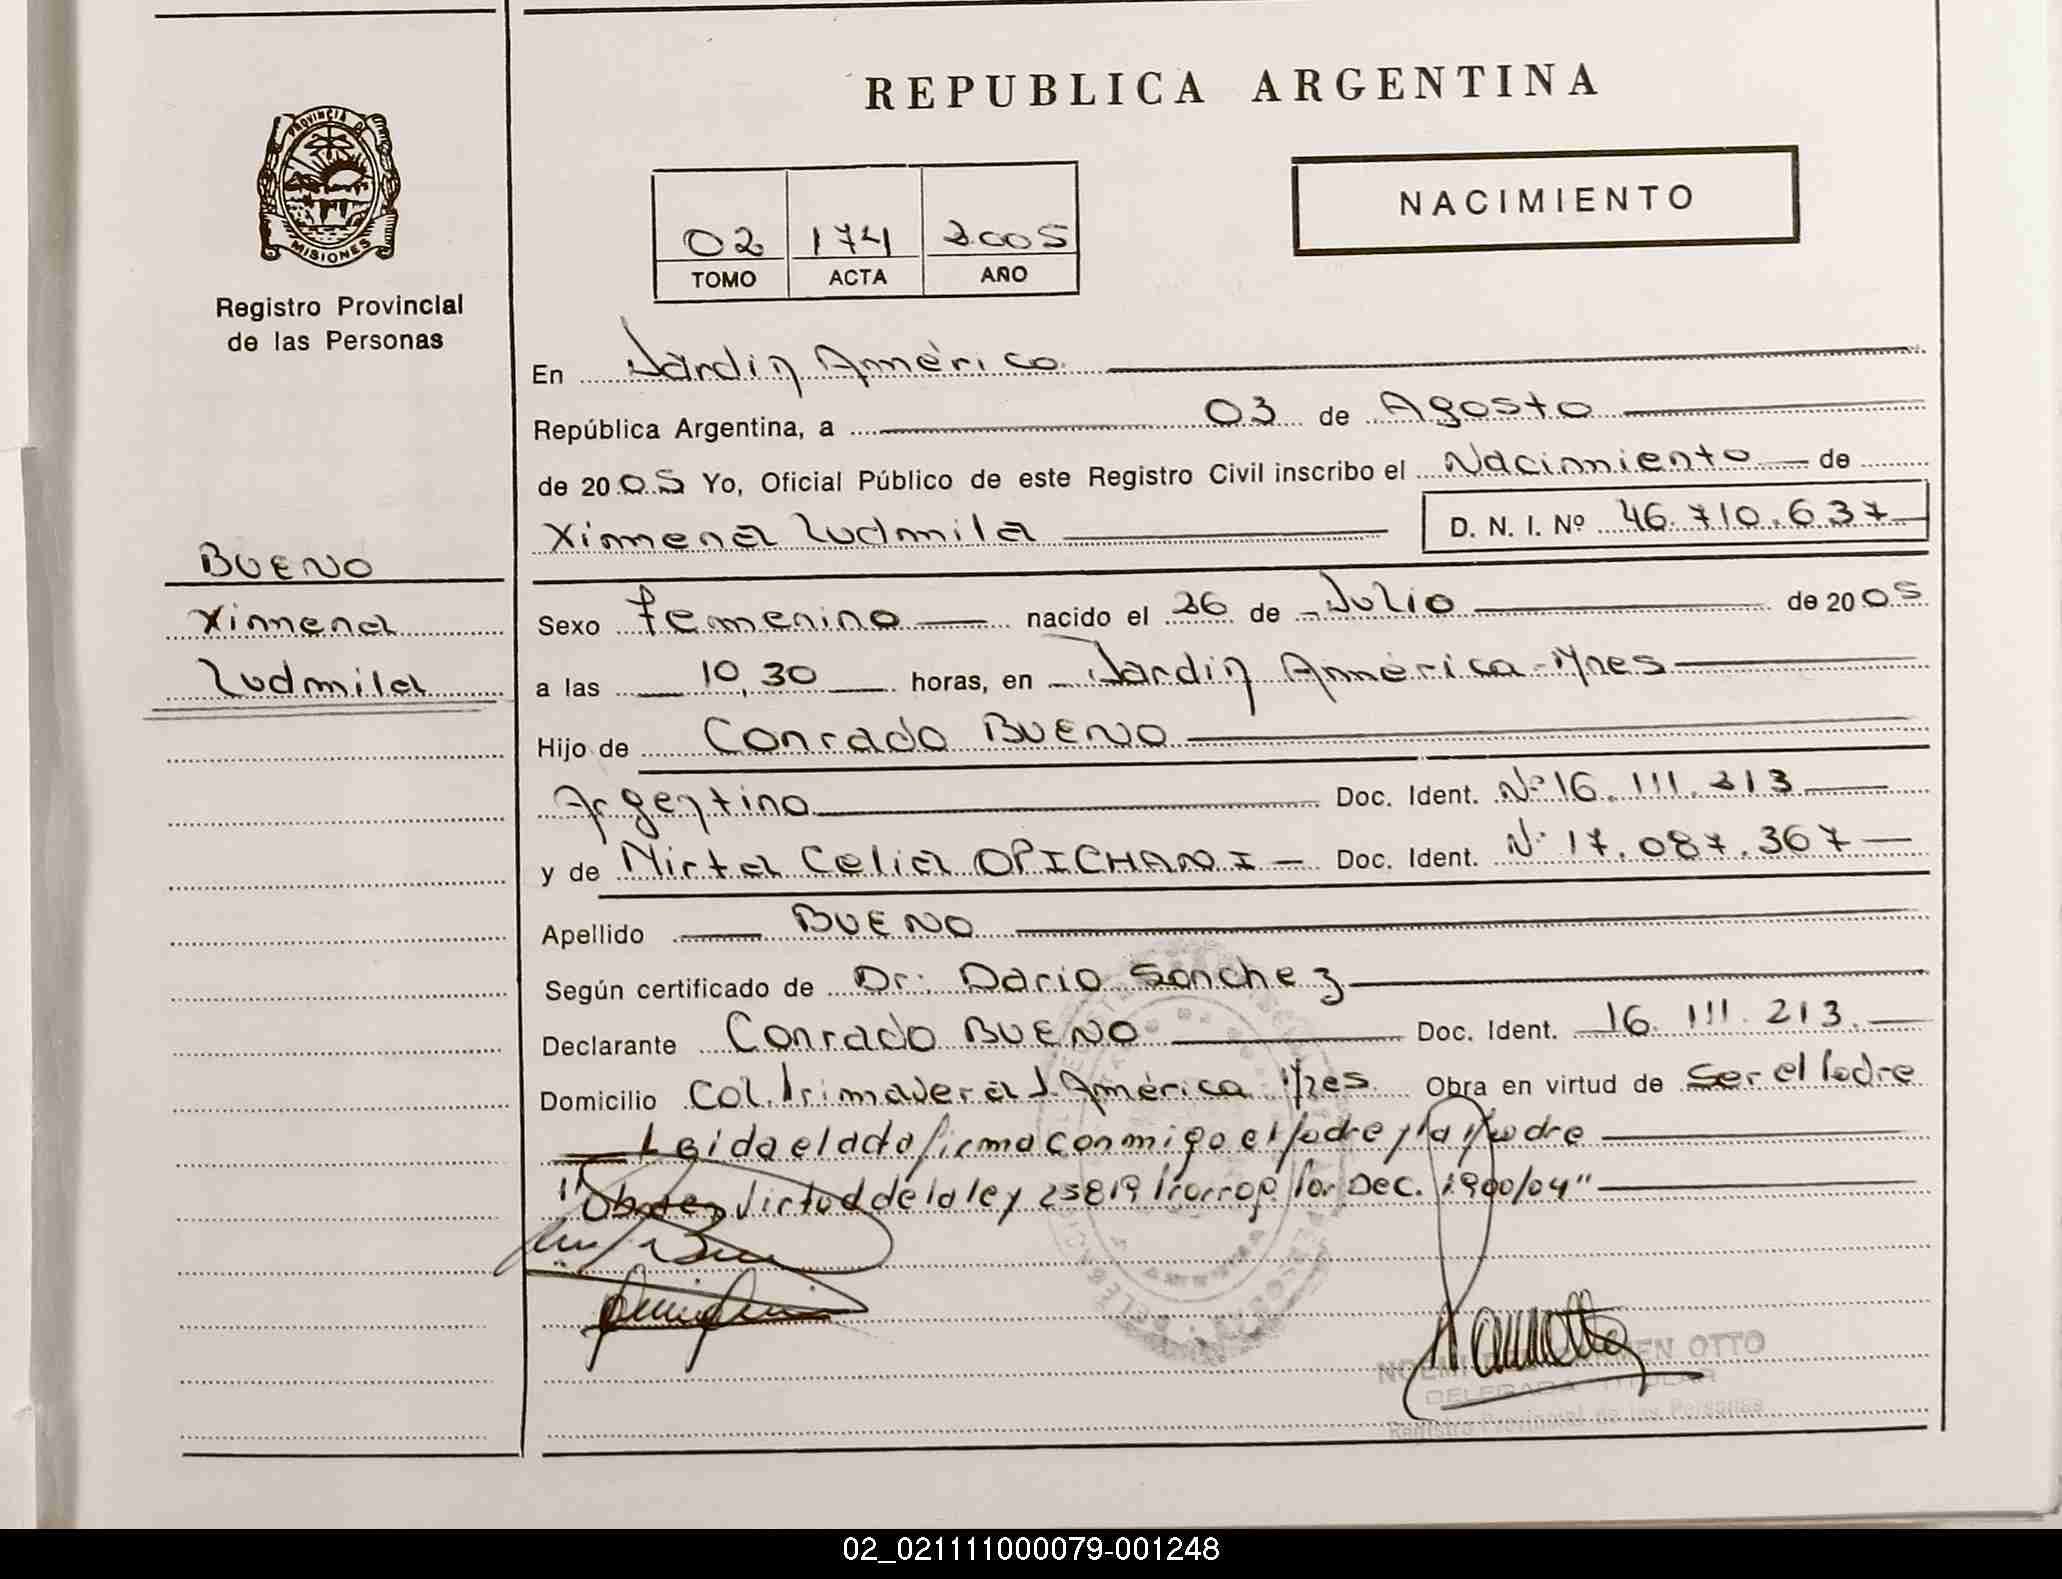 REPUBLICA ARGENTINA
PROVINCIA DE
MISIONES
Registro Provincial
de las Personas
NACIMIENTO
02 174 2005
TOMO ACTA AÑO
En Jardin América
República Argentina, a 03 de Agosto
de 2005 Yo, Oficial Público de este Registro Civil inscribo el Nacimiento de
Ximena Ludmila D. N. I. Nº 46.710.637
BUENO
Ximena
Ludmila
Sexo femenino nacido el 26 de Julio de 2005
a las 10,30 horas, en Jardin América - Mnes
Hijo de Conrado BUENO
Argentino Doc. Ident. Nº 16.111.213
y de Mirta Celia OPICHANI Doc. Ident. Nº 17.087.367
Apellido BUENO
Según certificado de Dr. Dario Sanchez
Declarante Conrado BUENO Doc. Ident. 16.111.213.
Domicilio Col. Primavera J. América Mnes Obra en virtud de Ser el Padre
Leida el acta firma conmigo el Padre y la Madre
"Obra en virtud de la ley 25819 Prorrog. Por Dec. 1900/04"
OTTO
DELEGADA TITULAR
Registro Provincial de las Personas
02_021111000079-001248